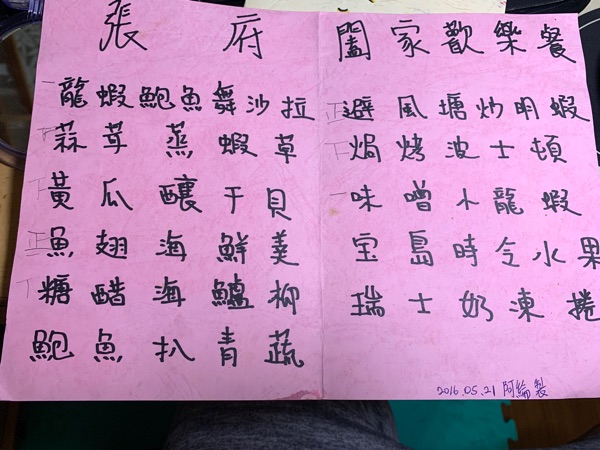 張府
龍蝦鮑魚舞沙拉
蒜茸蒸蝦草
黃瓜釀干貝
魚翅海鮮羹
糖醋海鱸柳
鮑魚扒青蔬
闔家歡樂餐
避風塘炒明蝦
焗烤波士頓
味噌小龍蝦
宝島時令水果
瑞士奶凍捲
2016.05.21 阿綸製